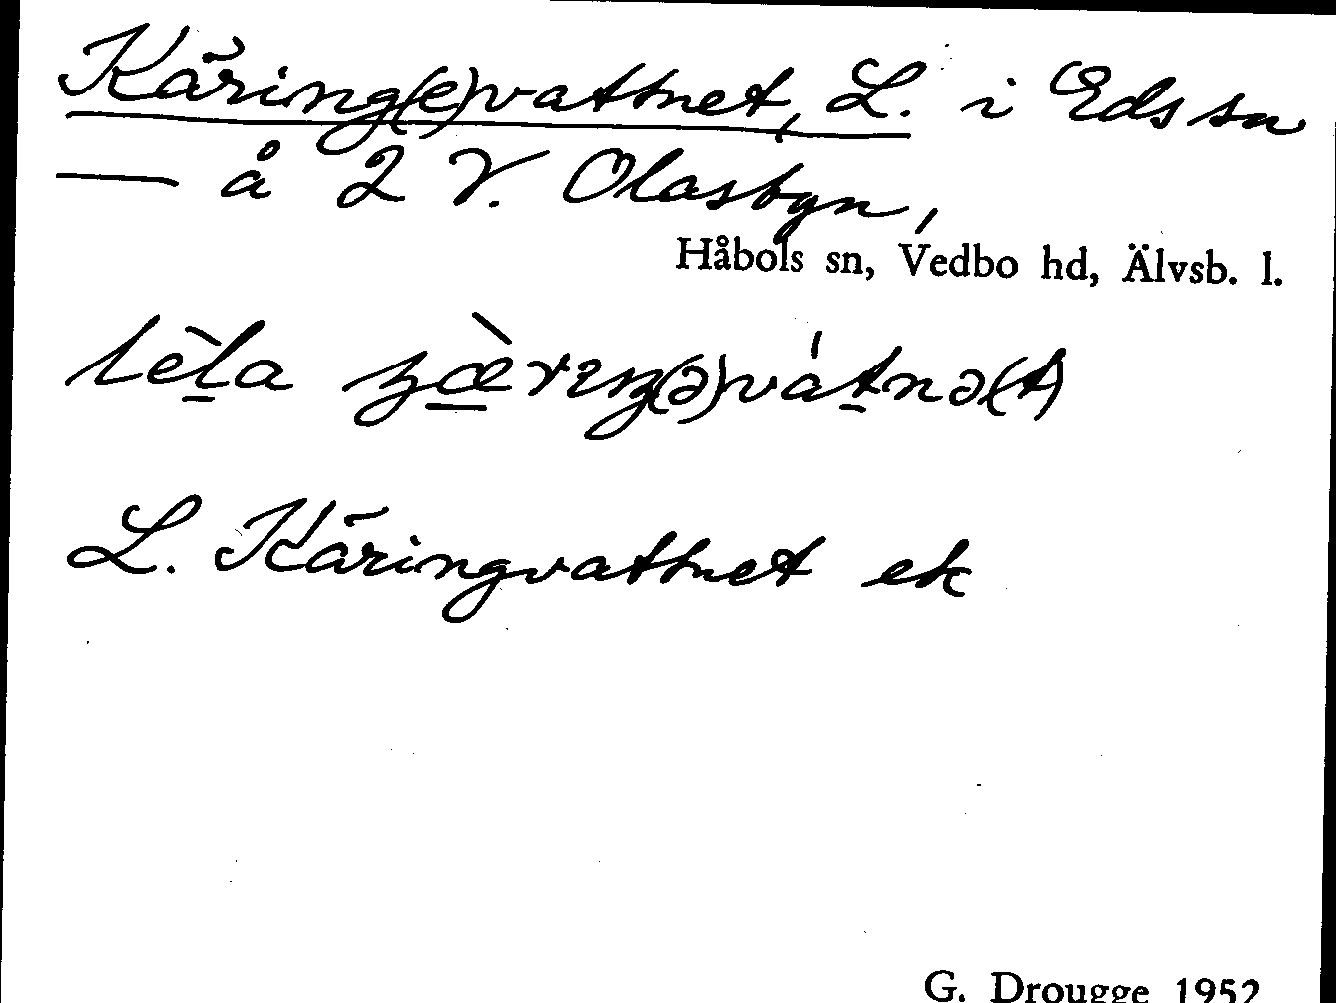 Käring(e)vattnet, L. i Eds sn
— å 2 V. Olasbyn,
Håbols sn, Vedbo hd, Älvsb. l.
L. Käringvattnet ek
G. Drougge 1952